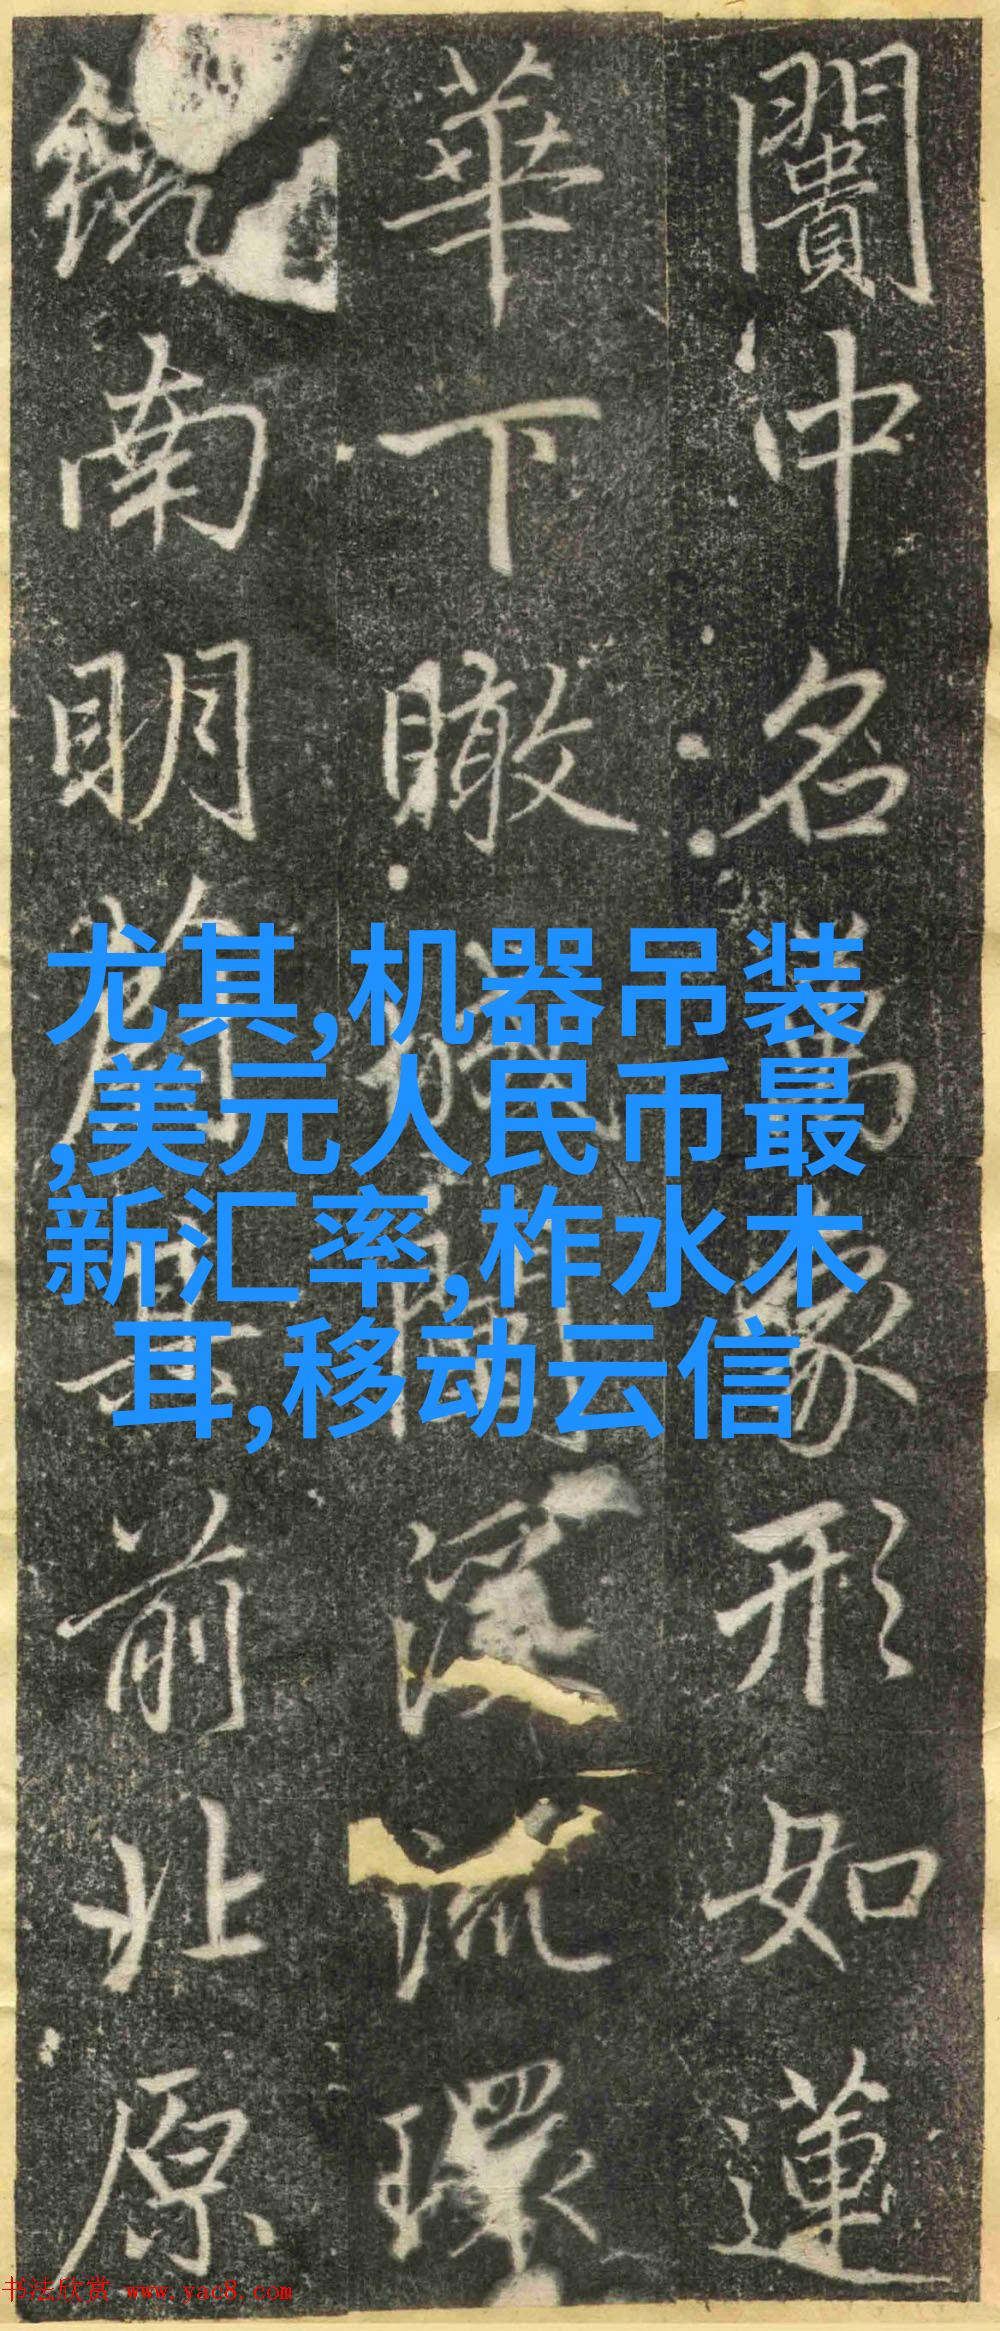 闠冲名萬象形如蓮
華下瞰環
南明前北原
尤其,机器吊装
,美元人民币最
新汇率,柞水木
耳,移动云信
书法欣赏 www.yac8.com